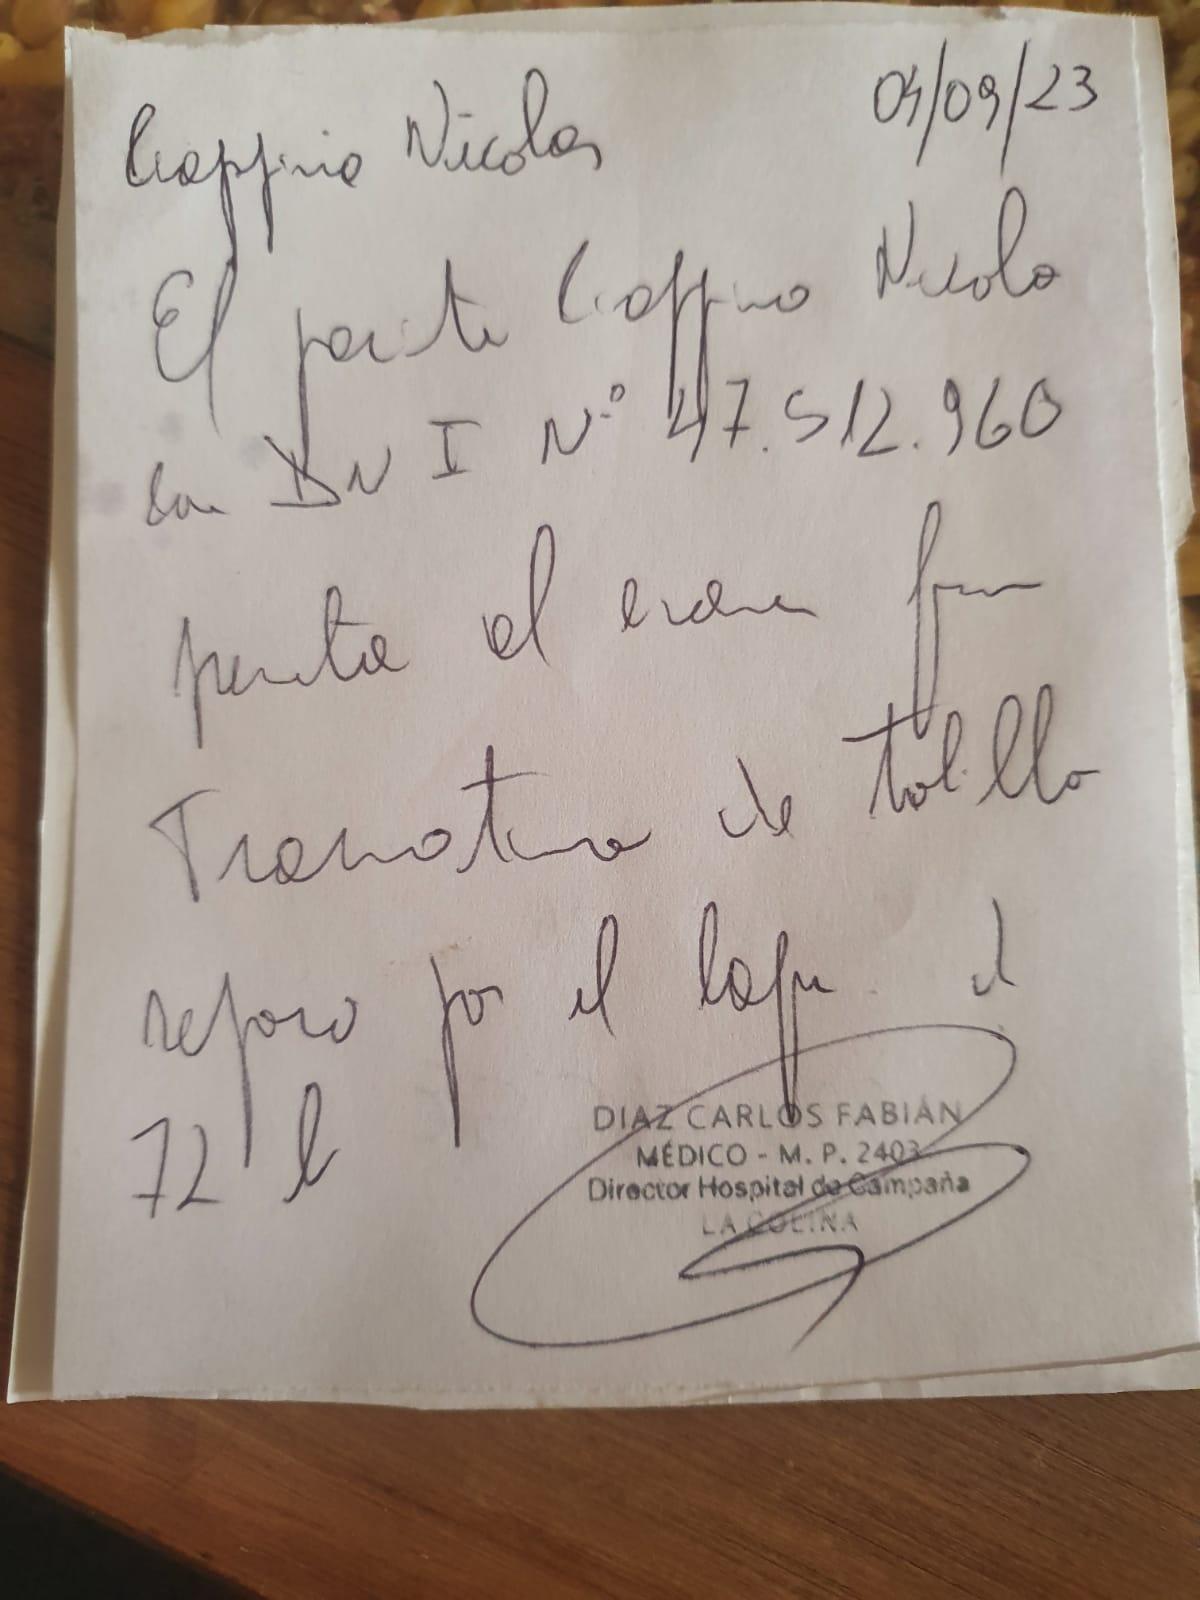 Ciappina Nicolas 04/09/23
El paciente Ciappina Nicolas
con DNI Nº 47.512.960
presenta al examen
Traumatismo de tobillo
reposo por el lapso de
72 h
DIAZ CARLOS FABIÁN
MÉDICO - M. P. 2403
Director Hospital de Campaña
LA COLINA